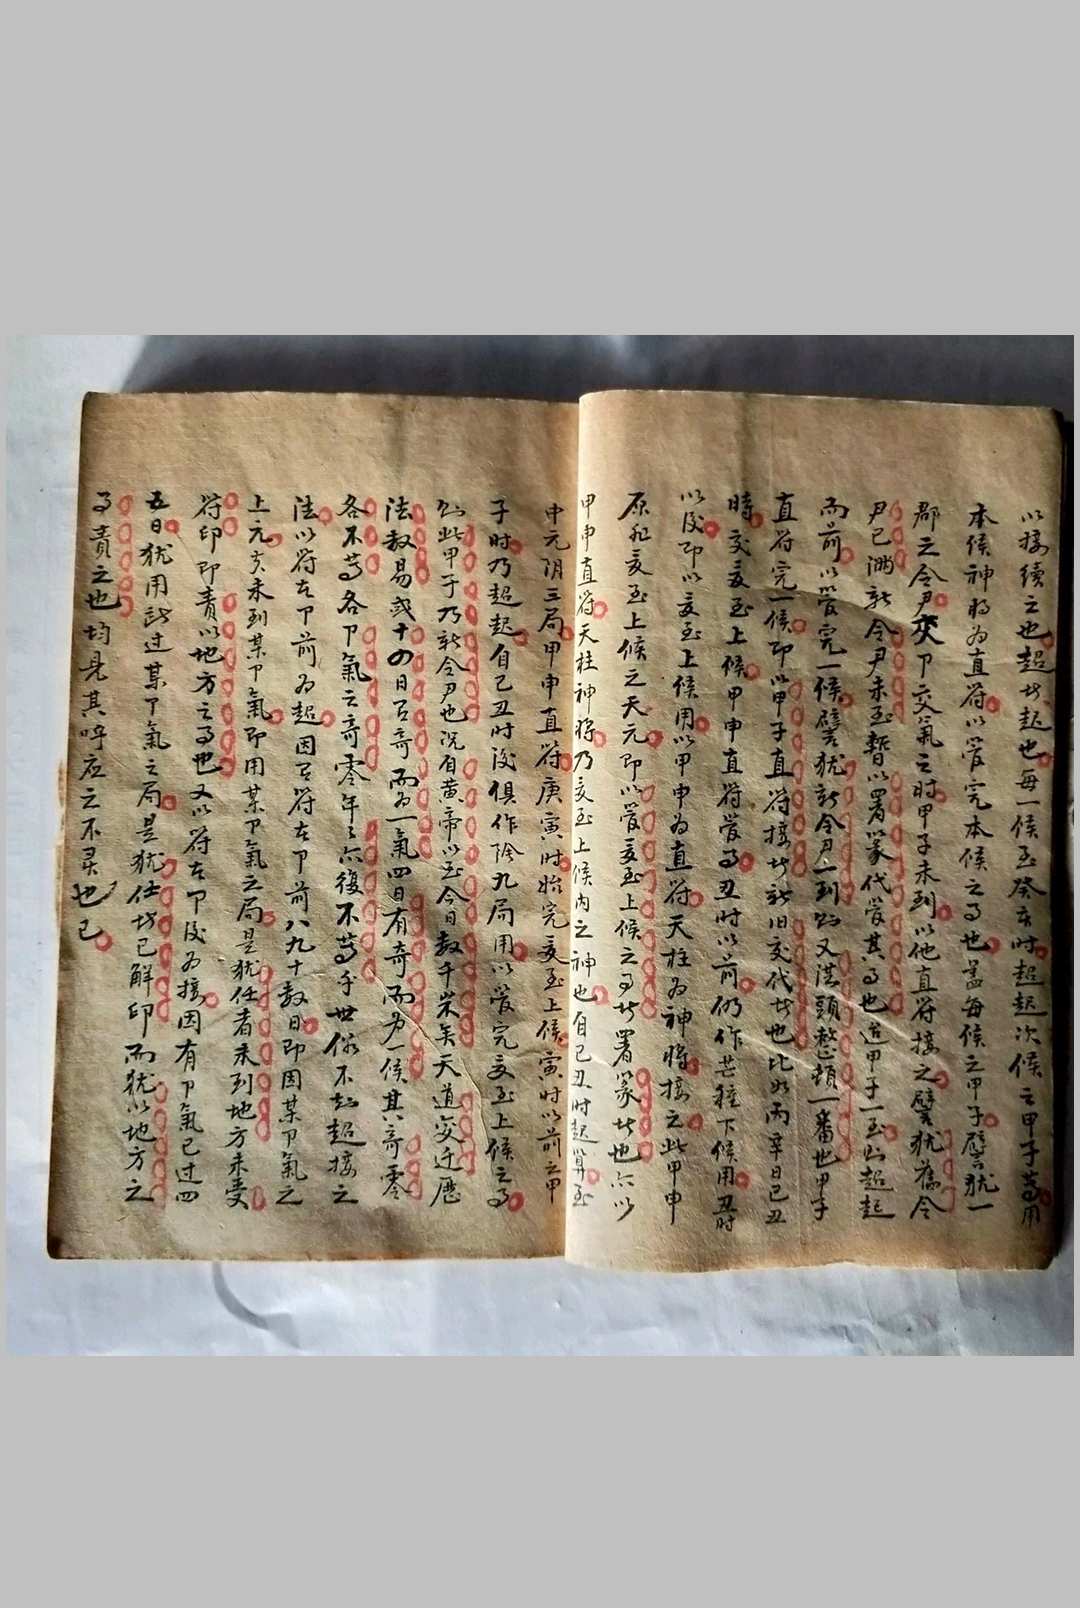 以接续之也超者起也每一候至癸亥时超起次候之甲子等用
本候神将为直符以管完本候之事也盖每候之甲子譬犹一
郡之令尹交卩交氣之时甲子未到以他直符接之譬犹旧令
尹已满新令尹未至暂以署篆代管其事也迨甲子一至则超起
而前以管完一候譬犹新令尹一到则又从頭整頓一番也甲子
直符完一候即以甲子直符接者新旧交代者也比如丙辛日己丑
時交夏至上候甲申直符管事丑时以前仍作芒種下候用丑时
以後即以夏至上候用以甲申为直符天柱为神将接之此甲申
原非夏至上候之天元即以管夏至上候之事者署篆者也所以
甲申直符天柱神将乃夏至上候内之神也自己丑时起算至
中元阴三局甲申直符庚寅时始完夏至上候寅时以前之甲
子时乃超起自己丑时後俱作陰九局用以管完夏至上候之事
则此甲子乃新令尹也况自黄帝以至今日数千米矣天道变迁歷
法数易或十四日有奇而为一氣四日有奇而为一候其奇零
各不等各卩氣之奇零年之亦復不等乎世俗不知超接之
法以符在卩前为超因有符在卩前八九十数日即因某卩氣之
上元亥未到某卩氣即用某卩氣之局是犹任者未到地方未受
符印即责以地方之事也又以符在卩後为接因有卩氣已过四
五日犹用既过某卩氣之局是犹仕者已解印而犹以地方之
事责之也均是其呼应之不灵也已